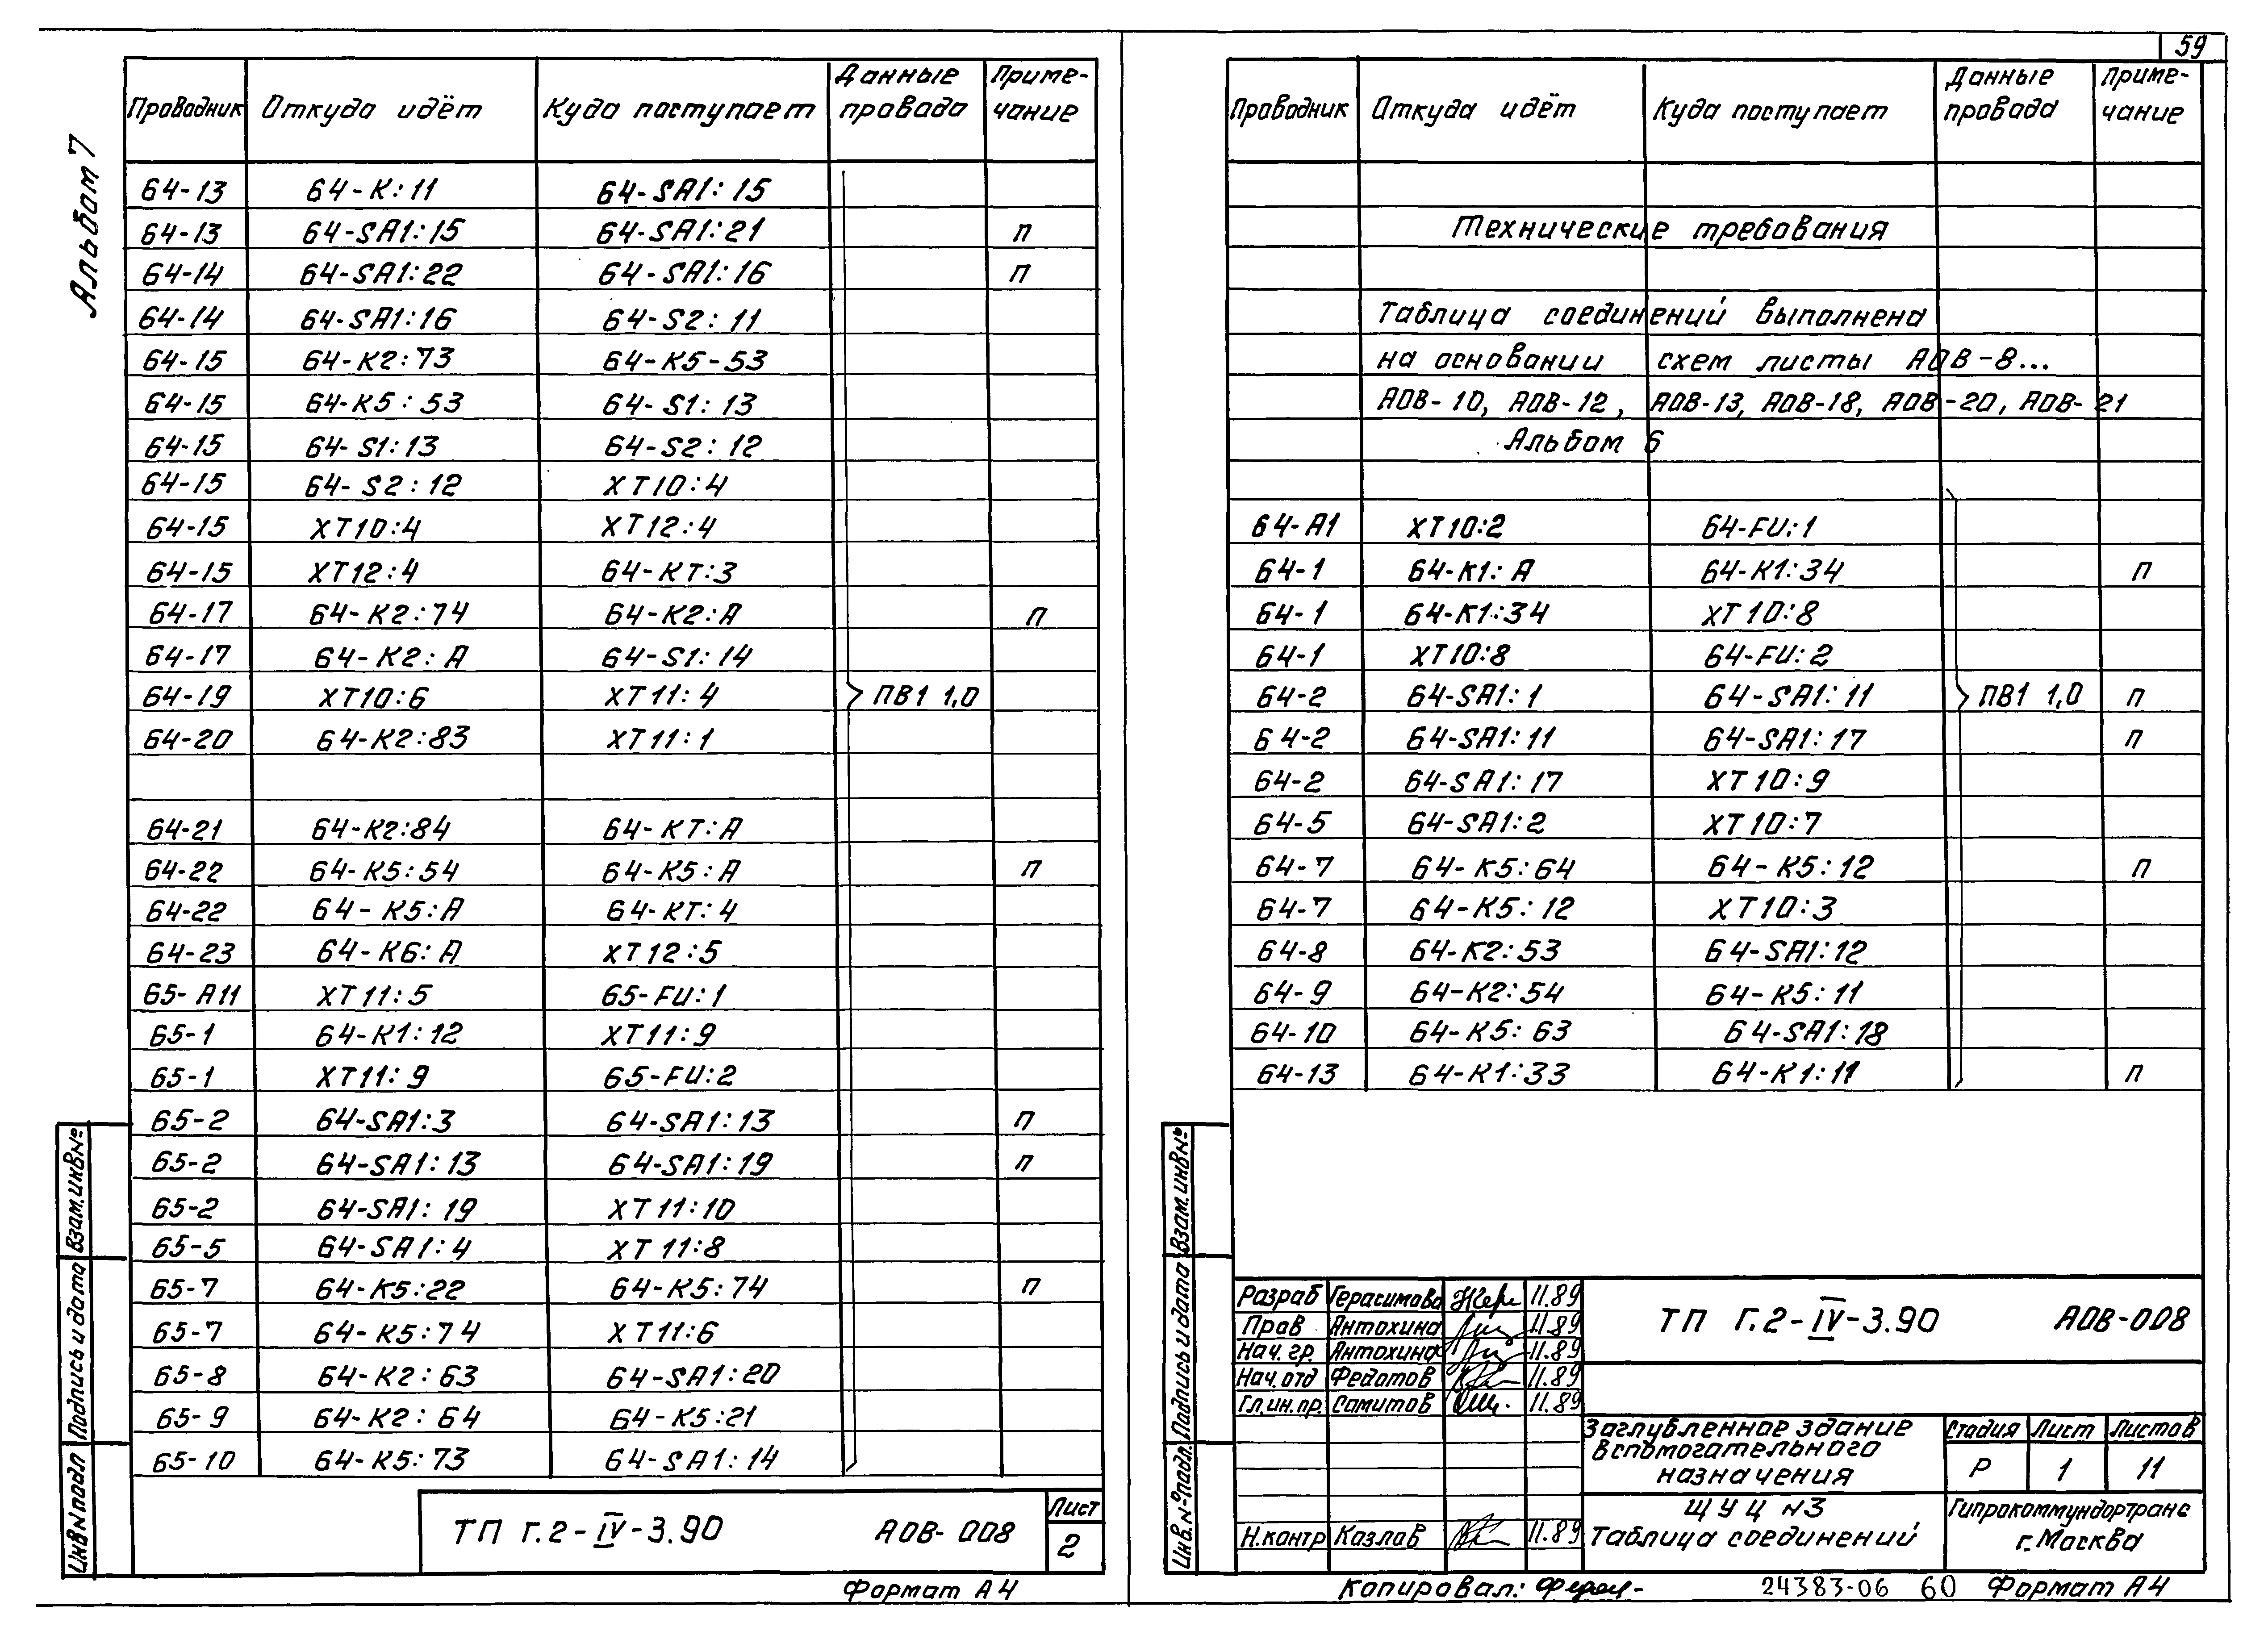 59
Альбом 7
Проводник Откуда идёт Куда поступает Данные провода Примечание
64-13 64-К:11 64-SA1:15
64-13 64-SA1:15 64-SA1:21 п
64-14 64-SA1:22 64-SA1:16 п
64-14 64-SA1:16 64-S2:11
64-15 64-К2:73 64-К5-53
64-15 64-К5:53 64-S1:13
64-15 64-S1:13 64-S2:12
64-15 64-S2:12 ХТ10:4
64-15 ХТ10:4 ХТ12:4
64-15 ХТ12:4 64-КТ:3
64-17 64-К2:74 64-К2:А п
64-17 64-К2:А 64-S1:14
64-19 ХТ10:6 ХТ11:4 ПВ1 1,0
64-20 64-К2:83 ХТ11:1
64-21 64-К2:84 64-КТ:А
64-22 64-К5:54 64-К5:А п
64-22 64-К5:А 64-КТ:4
64-23 64-К6:А ХТ12:5
65-А11 ХТ11:5 65-FU:1
65-1 64-К1:12 ХТ11:9
65-1 ХТ11:9 65-FU:2
65-2 64-SA1:3 64-SA1:13 п
65-2 64-SA1:13 64-SA1:19 п
65-2 64-SA1:19 ХТ11:10
65-5 64-SA1:4 ХТ11:8
65-7 64-К5:22 64-К5:74 п
65-7 64-К5:74 ХТ11:6
65-8 64-К2:63 64-SA1:20
65-9 64-К2:64 64-К5:21
65-10 64-К5:73 64-SA1:14
Взам.инв№
Подпись и дата
Инв№подл
ТП Г.2-IV-3.90 АОВ-008
Лист
2
Формат А4
Проводник Откуда идёт Куда поступает Данные провода Примечание
Технические требования
Таблица соединений выполнена
на основании схем листы АОВ-8...
АОВ-10, АОВ-12, АОВ-13, АОВ-18, АОВ-20, АОВ-21
Альбом 6
64-А1 ХТ10:2 64-FU:1
64-1 64-К1:А 64-К1:34 п
64-1 64-К1:34 ХТ10:8
64-1 ХТ10:8 64-FU:2
64-2 64-SA1:1 64-SA1:11 ПВ1 1,0 п
64-2 64-SA1:11 64-SA1:17 п
64-2 64-SA1:17 ХТ10:9
64-5 64-SA1:2 ХТ10:7
64-7 64-К5:64 64-К5:12 п
64-7 64-К5:12 ХТ10:3
64-8 64-К2:53 64-SA1:12
64-9 64-К2:54 64-К5:11
64-10 64-К5:63 64-SA1:18
64-13 64-К1:33 64-К1:11 п
Взам.инв№
Подпись и дата
Инв.№подл.
Разраб Герасимова 11.89
Пров Антохина 11.89
Нач.гр. Антохина 11.89
Нач.отд Федотов 11.89
Гл.ин.пр. Самитов 11.89
Н.контр Козлов 11.89
ТП Г.2-IV-3.90 АОВ-008
Заглубленное здание
вспомогательного
назначения
Стадия Лист Листов
Р 1 11
ЩУЦ №3
Таблица соединений
Гипрокоммундортранс
г.Москва
Копировал:
24383-06 60 Формат А4